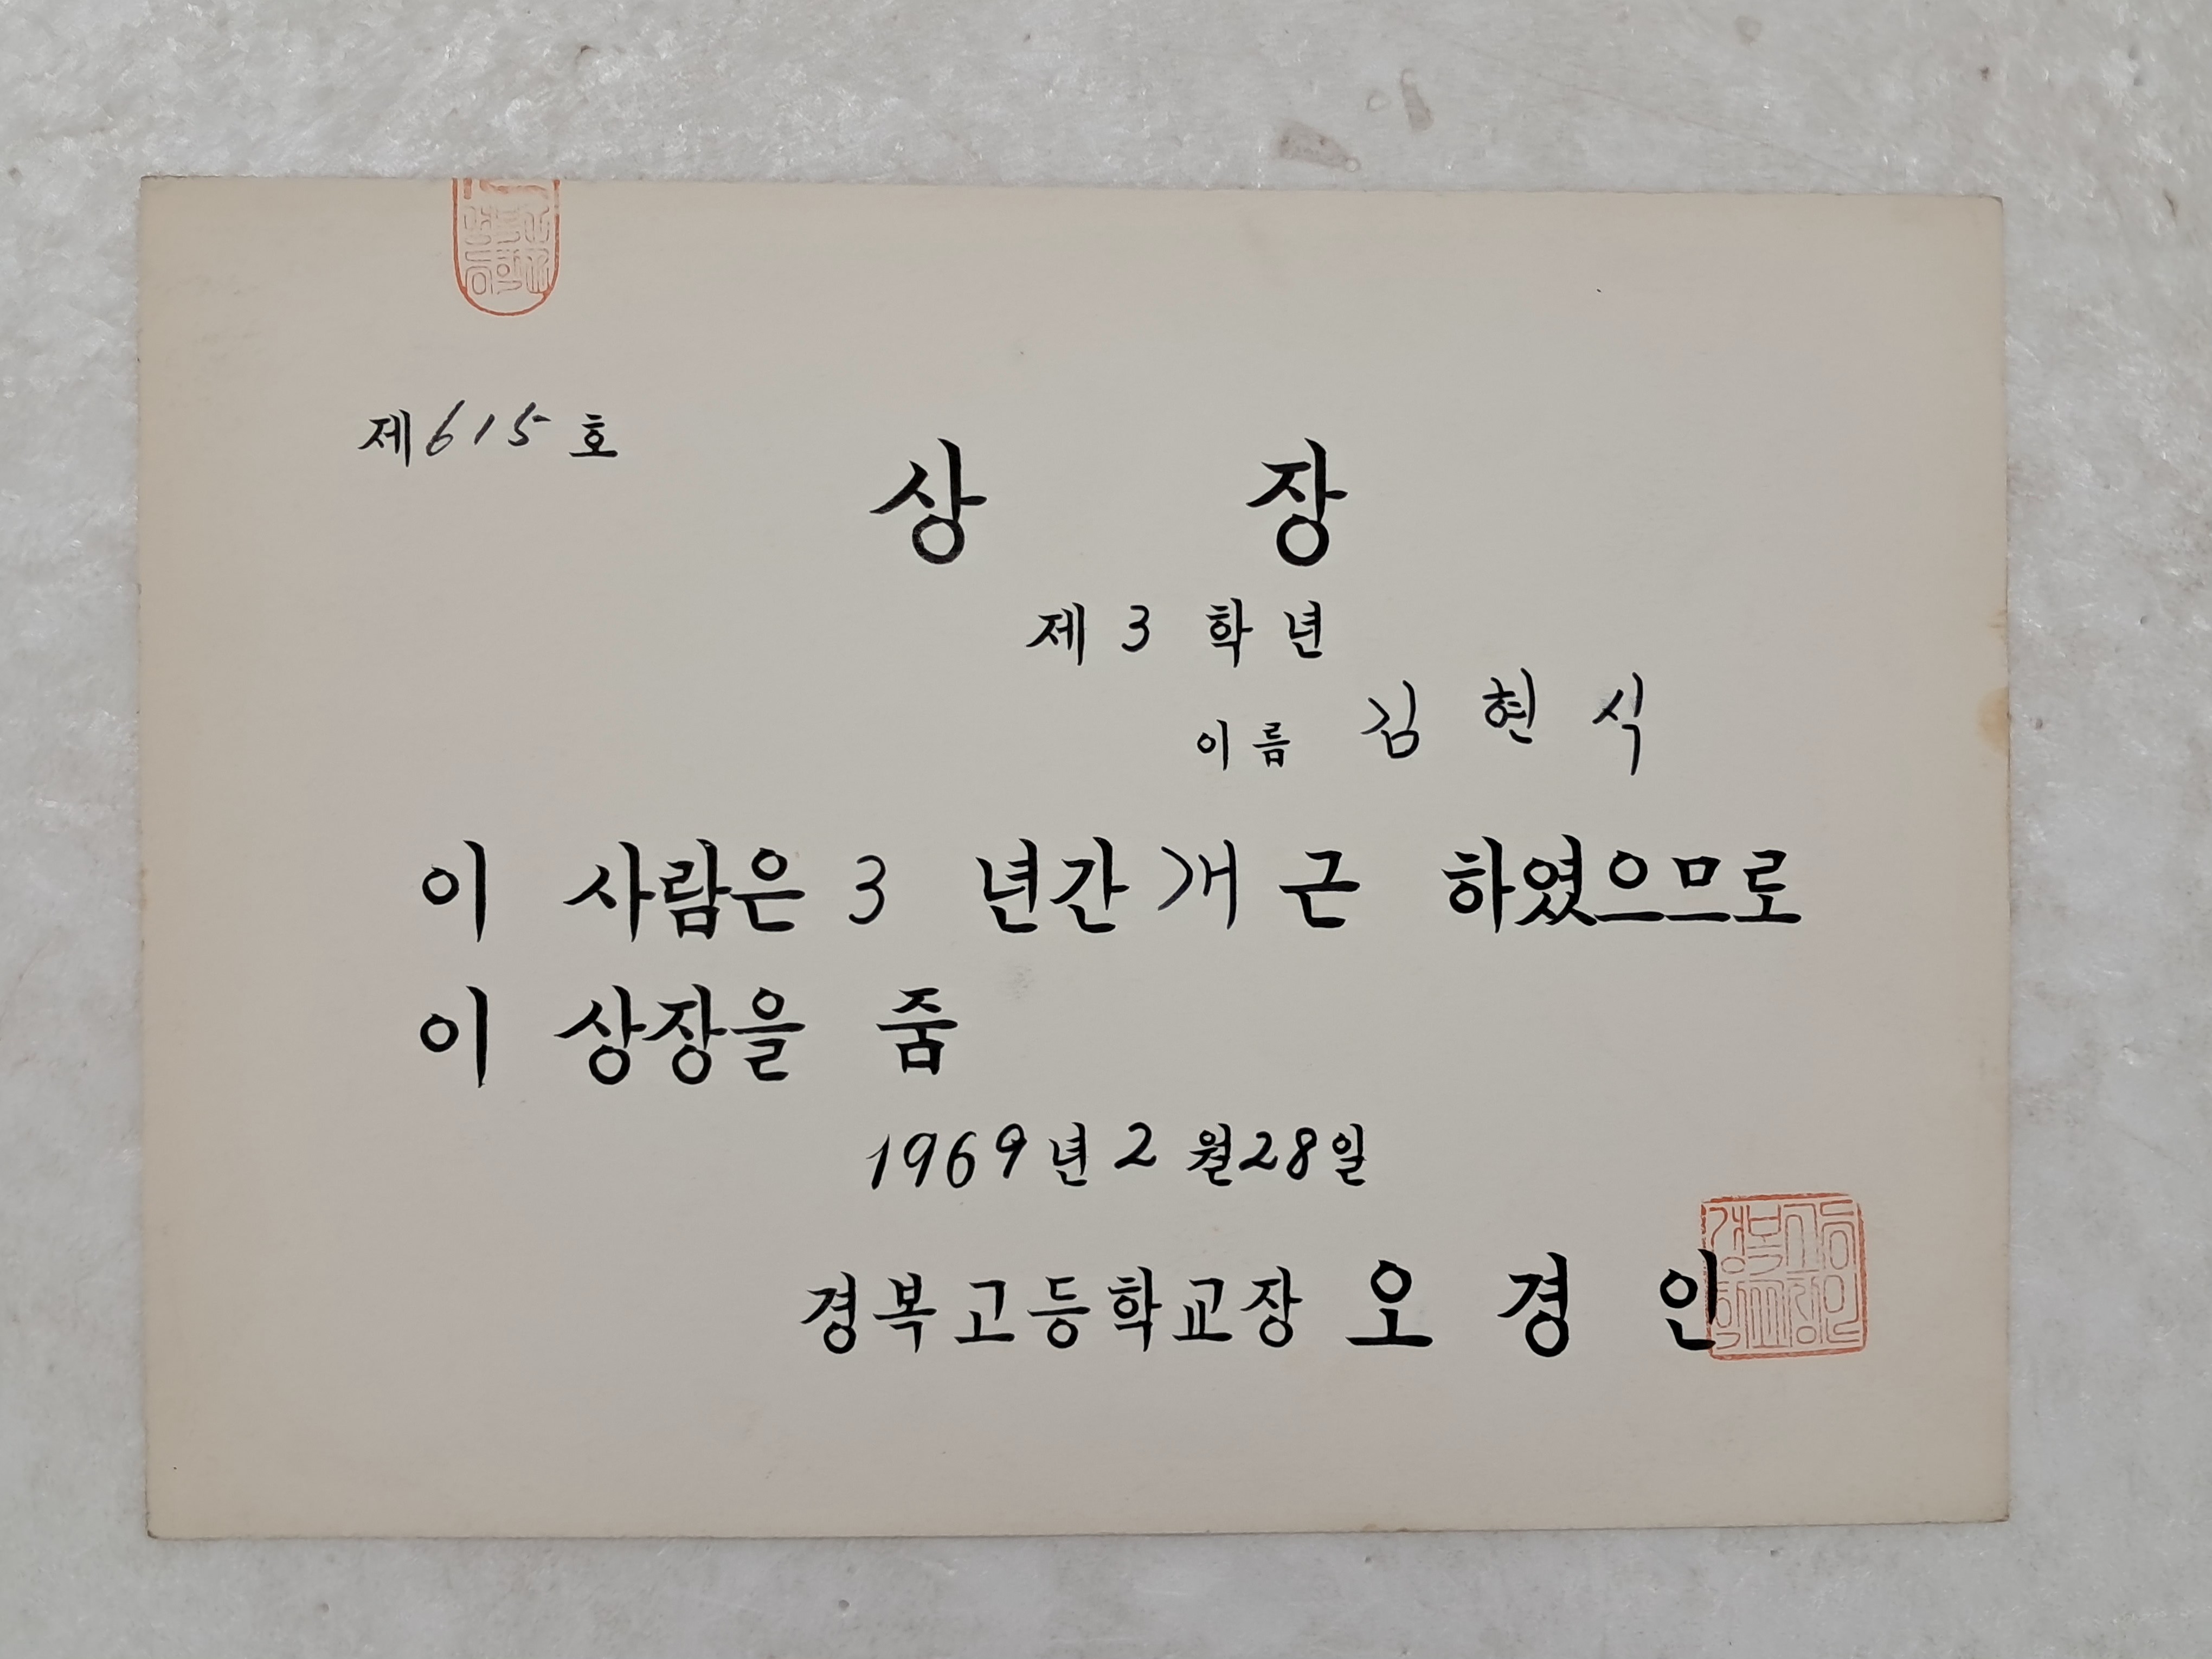 제615호
상 장
제 3 학년
이름 김 현 식
이 사람은 3 년간 개근 하였으므로
이 상장을 줌
1969년 2 월 28일
경복고등학교장 오 경 인
경복고등
학교장인